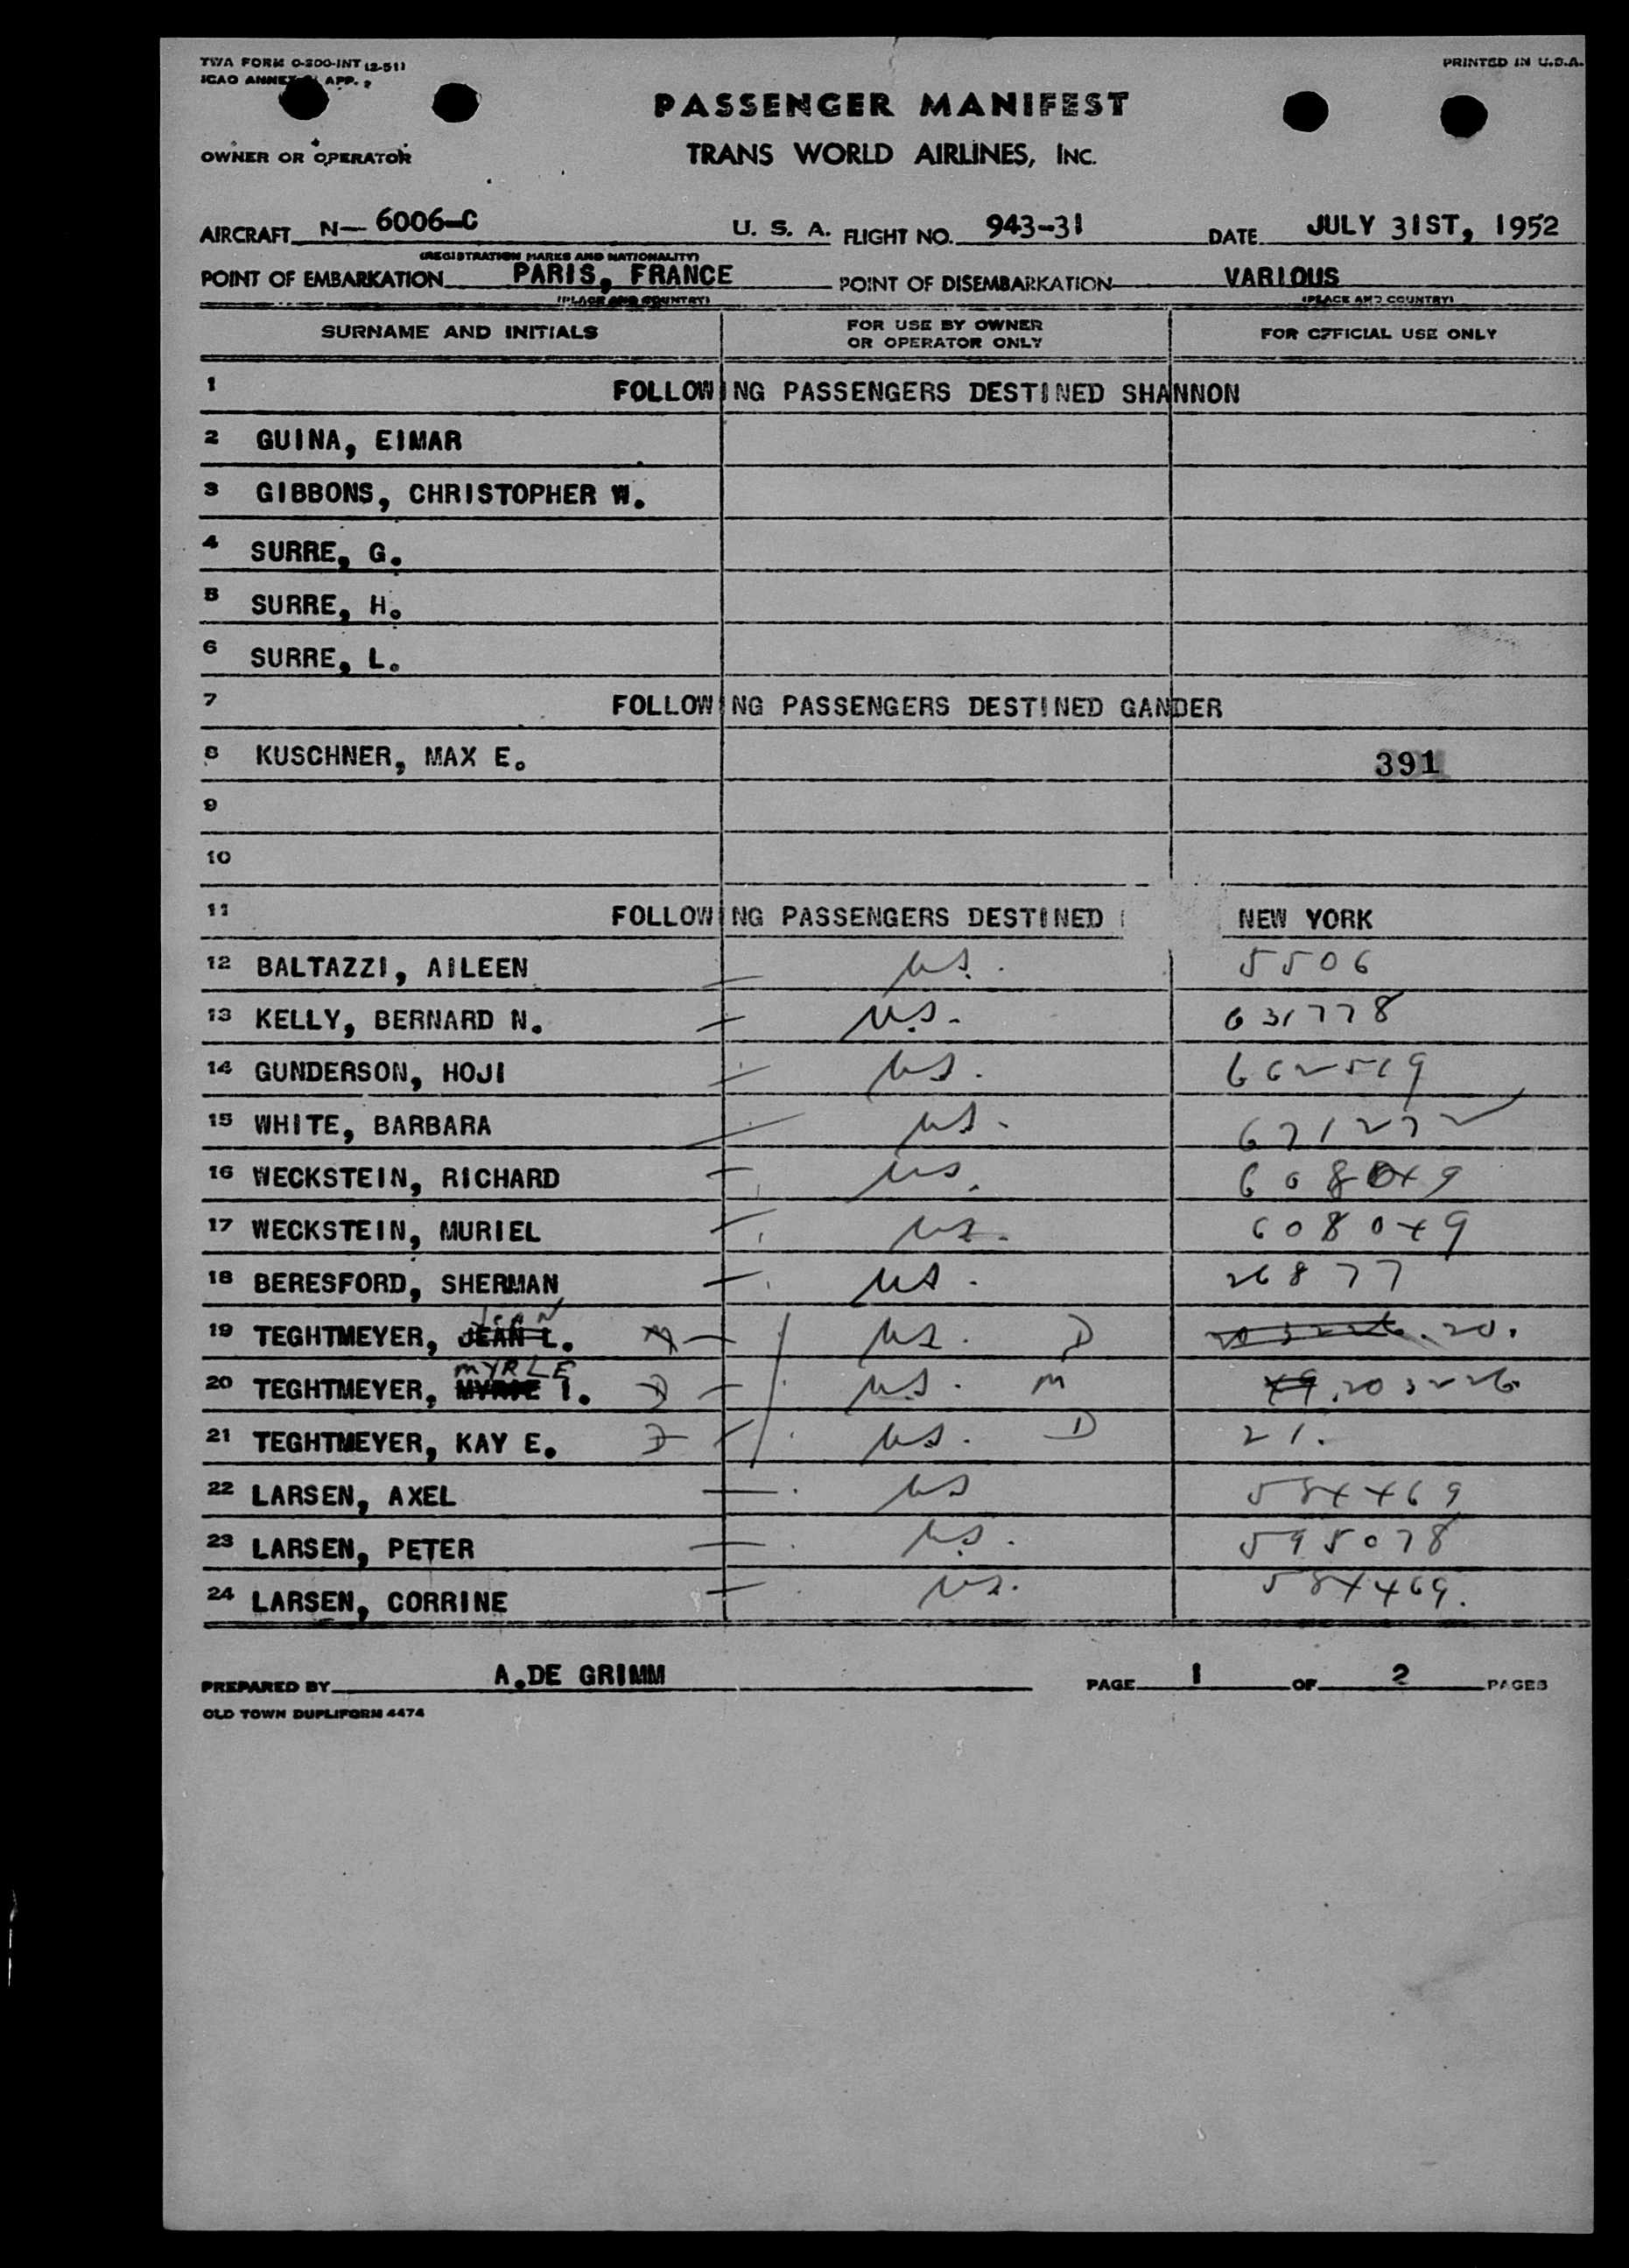 TWA FORM O-300-INT (2-51)
PRINTED IN U.S.A.
ICAO ANNEX APP.
PASSENGER MANIFEST
OWNER OR OPERATOR
TRANS WORLD AIRLINES, INC.
AIRCRAFT N— 6006-C U. S. A. FLIGHT NO. 943-31 DATE JULY 31ST, 1952
(REGISTRATION MARKS AND NATIONALITY)
POINT OF EMBARKATION PARIS, FRANCE POINT OF DISEMBARKATION VARIOUS
(PLACE AND COUNTRY) (PLACE AND COUNTRY)
SURNAME AND INITIALS FOR USE BY OWNER OR OPERATOR ONLY FOR OFFICIAL USE ONLY
1 FOLLOWING PASSENGERS DESTINED SHANNON
2 GUINA, EIMAR
3 GIBBONS, CHRISTOPHER W.
4 SURRE, G.
5 SURRE, H.
6 SURRE, L.
7 FOLLOWING PASSENGERS DESTINED GANDER
8 KUSCHNER, MAX E. 391
9
10
11 FOLLOWING PASSENGERS DESTINED NEW YORK
12 BALTAZZI, AILEEN — US. 5506
13 KELLY, BERNARD N. — U.S. 631778
14 GUNDERSON, HOJI — US. 662519
15 WHITE, BARBARA — US. 671272
16 WECKSTEIN, RICHARD — US. 608049
17 WECKSTEIN, MURIEL — US. 608049
18 BERESFORD, SHERMAN — US. 26877
JEAN
19 TEGHTMEYER, JEAN L. M — US. D 203226.20.
MYRLE
20 TEGHTMEYER, I. D — U.S. M 49.203226.
21 TEGHTMEYER, KAY E. D US. D 21.
22 LARSEN, AXEL — US 584469
23 LARSEN, PETER — US. 595078
24 LARSEN, CORRINE — US. 584469.
PREPARED BY A.DE GRIMM PAGE 1 OF 2 PAGES
OLD TOWN DUPLIFORM 4474